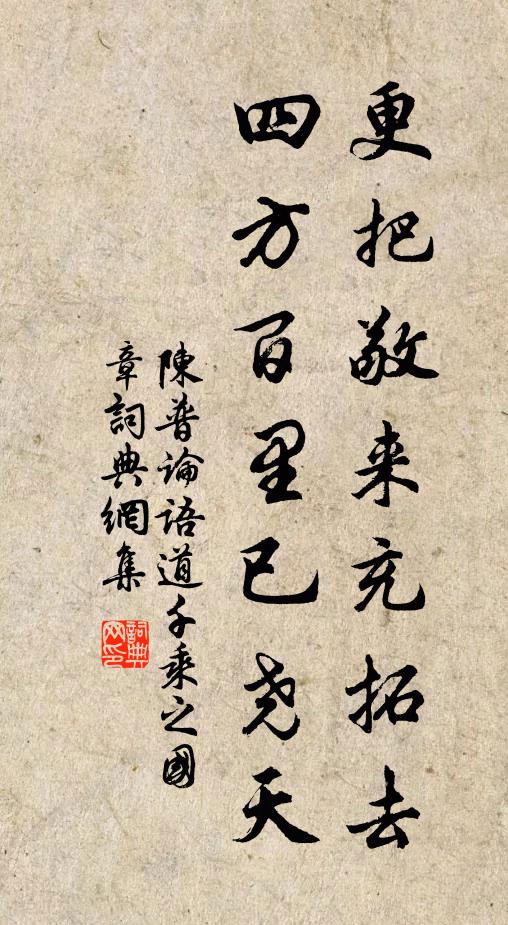 更把敬来充拓去
四方百里已尧天
陳普論語道千乘之國
章詞典網集
詞典
网印